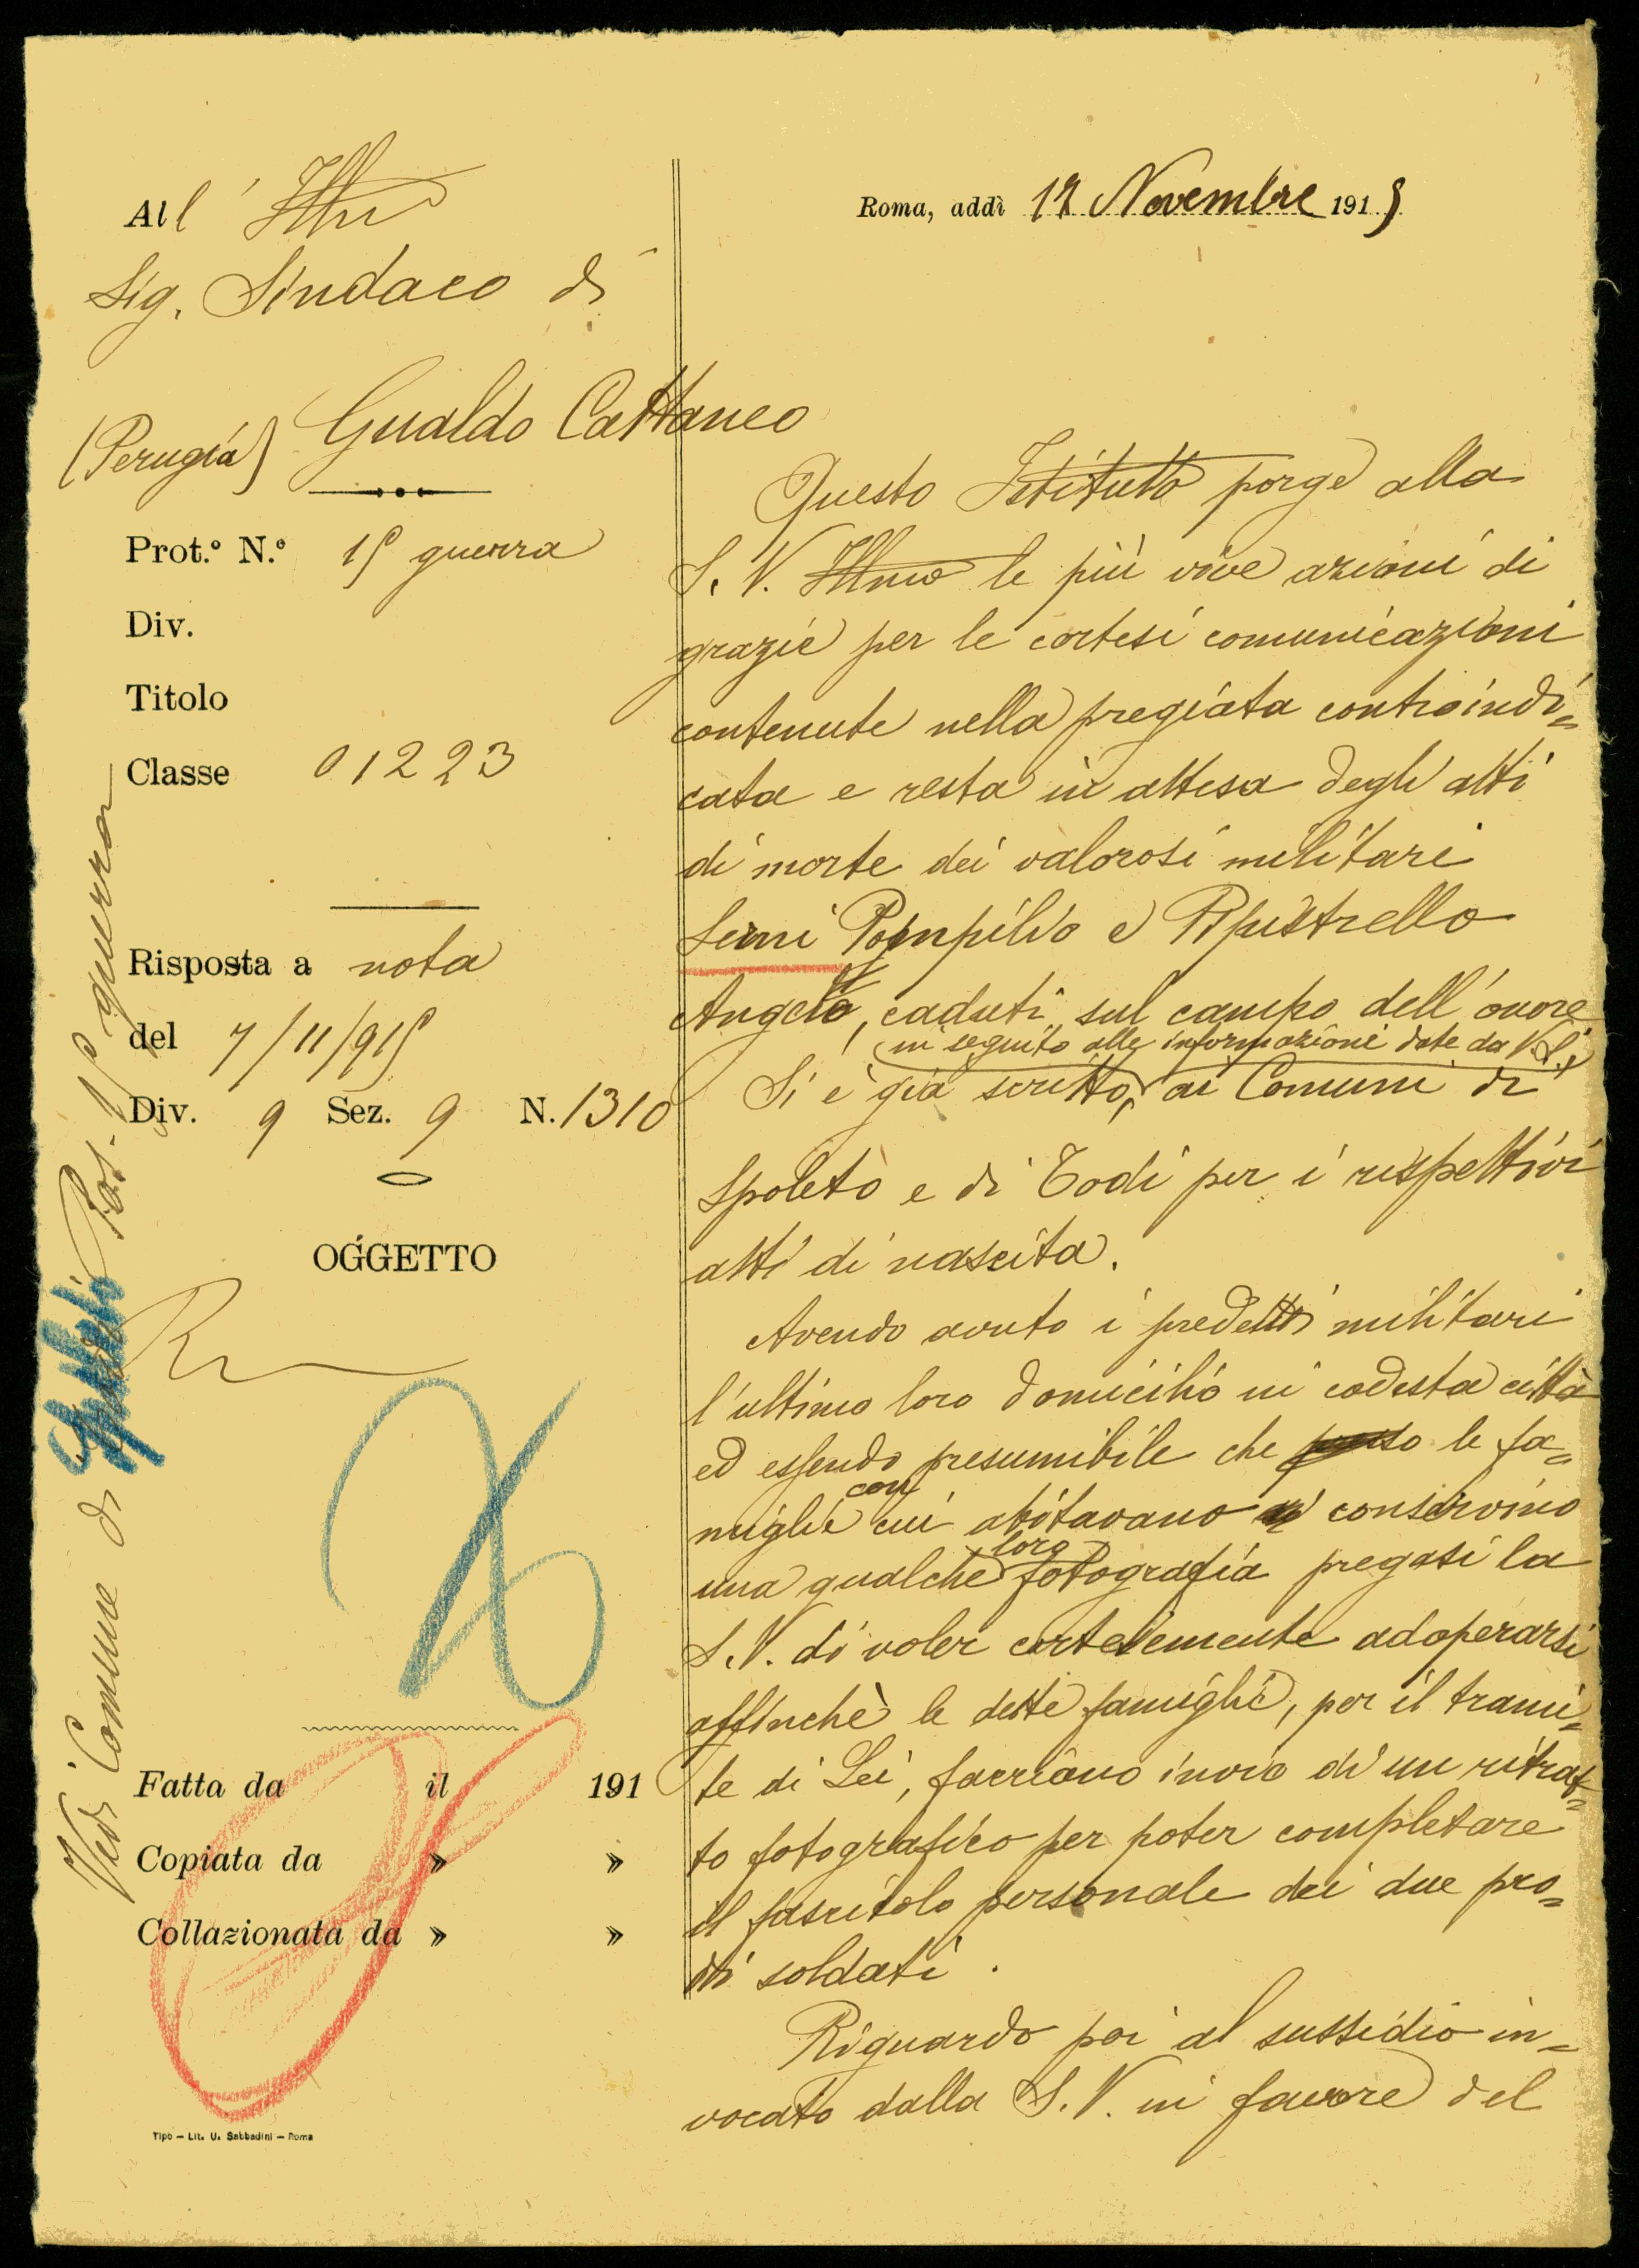 All' Illmo
Sig. Sindaco di
Gualdo Cattaneo
(Perugia)
Prot.° N.° 15 guerra
Div.
Titolo
Classe 01223
Risposta a nota
del 7/11/915
Div. 9 Sez. 9 N. 1310
OGGETTO
Vedi Comune di Pos. 15 guerra
Fatta da il 191
Copiata da » »
Collazionata da » »
Tipo – Lit. U. Sabbadini – Roma
Roma, addì Novembre 1915
Questo Istituto porge alla
S. V. Illma le più vive azioni di
grazie per le cortesi comunicazioni
contenute nella pregiata controindi=
cata e resta in attesa degli atti
di morte dei valorosi militari
Pompilio e Pipistrello
Angelo, caduti sul campo dell'onore
in seguito alle informazioni date da V. S.
Si è già scritto, ai Comuni di
Spoleto e di Todi per i rispettivi
atti di nascita.
Avendo avuto i predetti militari
l'ultimo loro domicilio in codesta città
ed essendo presumibile che le fa=
miglie con cui abitavano conservino
una qualche loro fotografia pregasi la
S. V. di voler cortesemente adoperarsi
affinchè le dette famiglie, per il trami=
te di Lei, facciano invio di un ritrat=
to fotografico per poter completare
il fascicolo personale dei due pro=
di soldati.
Riguardo poi al sussidio in=
vocato dalla S. V. in favore del